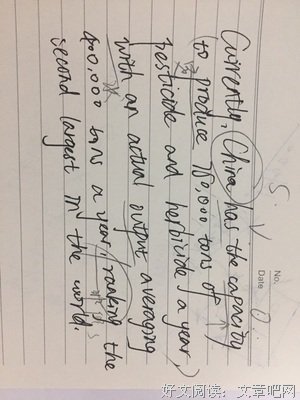 No.
Date
S. V O.
Currently, China has the capacity
to produce 780,000 tons of
pesticide and herbicide a year,
with an actual output averaging
400,000 tons a year, ranking the
second largest in the world.
好文阅读：文章吧网